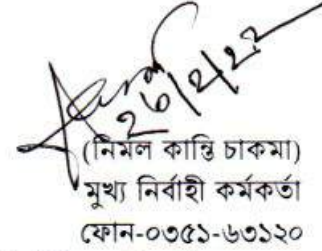 ২৬/২/২২
(নিমল কান্তি চাকমা)
মুখ্য নির্বাহী কর্মকর্তা
ফোন-০৩৫১-৬৩১২০